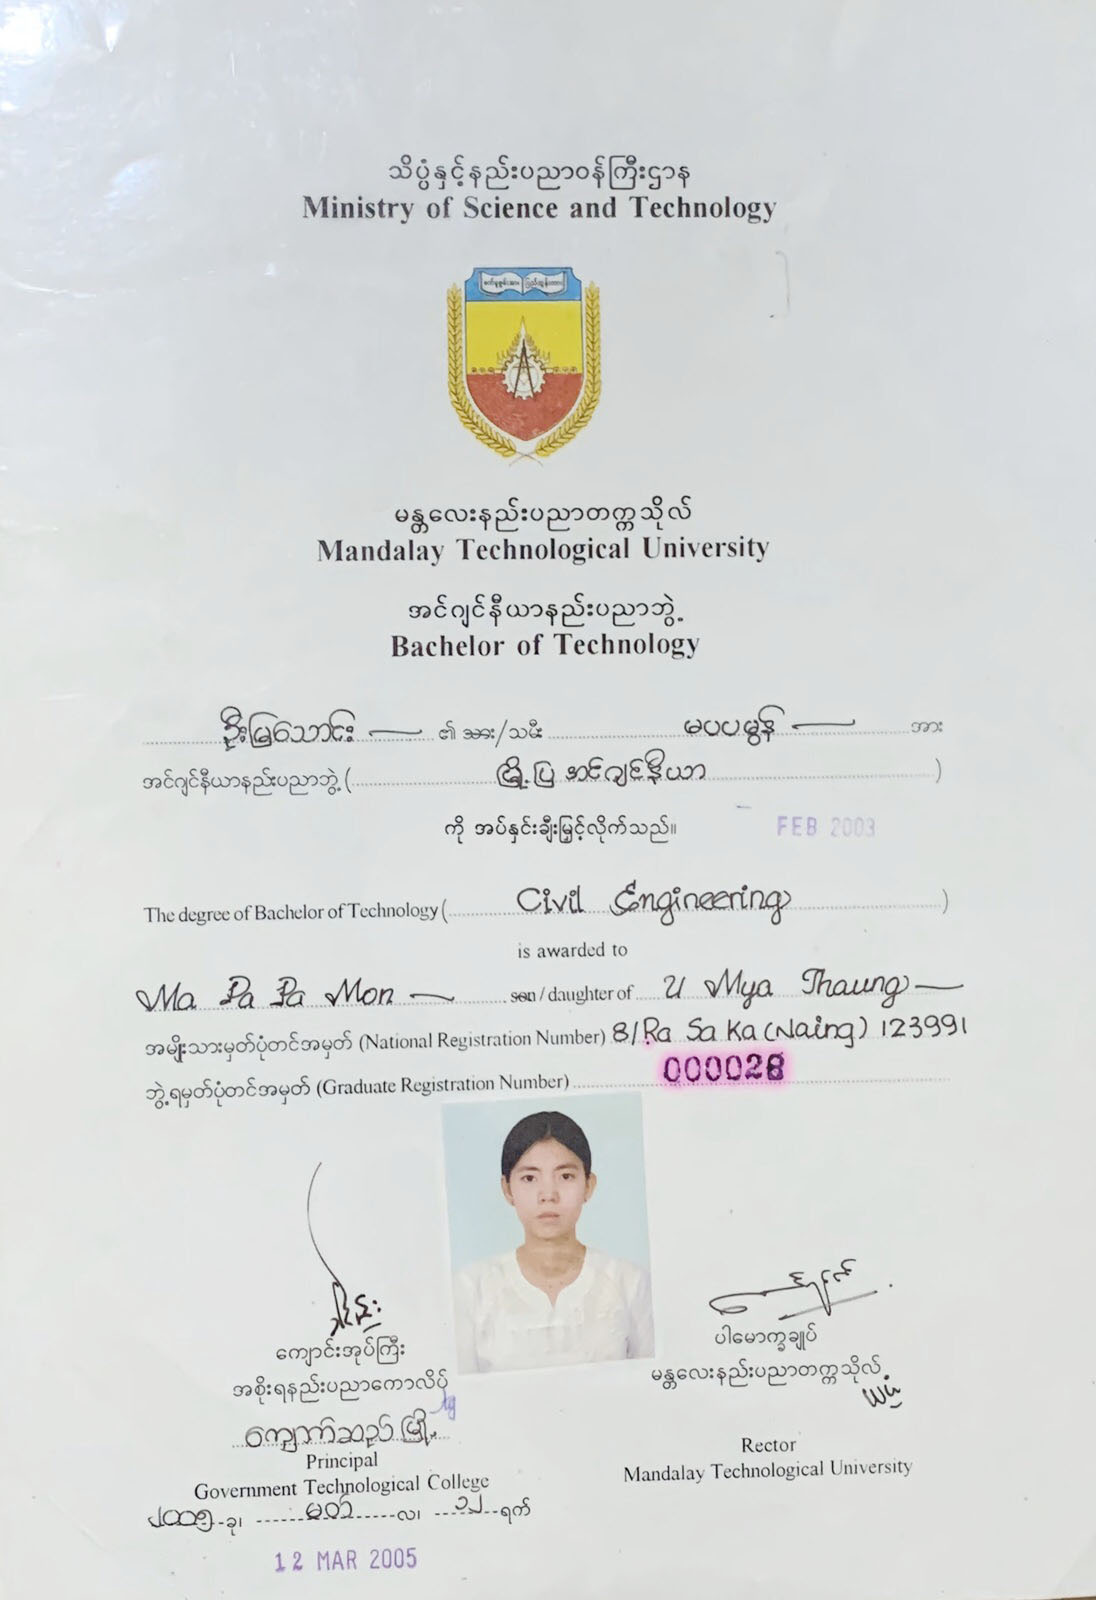 သိပ္ပံနှင့်နည်းပညာဝန်ကြီးဌာန
Ministry of Science and Technology
မန္တလေးနည်းပညာတက္ကသိုလ်
Mandalay Technological University
အင်ဂျင်နီယာနည်းပညာဘွဲ့
Bachelor of Technology
ဦးမြသောင်း ၏ သား/သမီး မပပမွန် အား
အင်ဂျင်နီယာနည်းပညာဘွဲ့ ( မြို့ပြ အင်ဂျင်နီယာ )
ကို အပ်နှင်းချီးမြှင့်လိုက်သည်။ FEB 2003
The degree of Bachelor of Technology ( Civil Engineering )
is awarded to
Ma Pa Pa Mon son / daughter of U Mya Thaung
အမျိုးသားမှတ်ပုံတင်အမှတ် (National Registration Number) 8/Ra Sa Ka (Naing) 123991
ဘွဲ့ရမှတ်ပုံတင်အမှတ် (Graduate Registration Number) 000028
ကျောင်းအုပ်ကြီး
အစိုးရနည်းပညာကောလိပ်
ကျောက်ဆည်မြို့
Principal
Government Technological College
၂၀၀၅ ခု၊ မတ် လ၊ ၁၂ ရက်
12 MAR 2005
ပါမောက္ခချုပ်
မန္တလေးနည်းပညာတက္ကသိုလ်
Rector
Mandalay Technological University